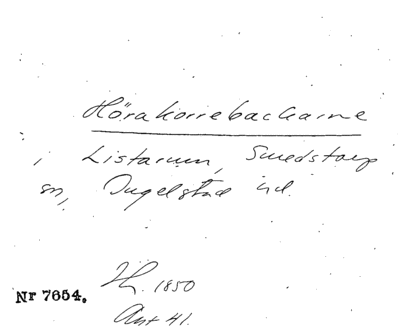 Hörakorrebackarne
i Listarum, Smedstorp
sn, Ingelstad hd.
Nr 7654.
Th. 1850
Ant 41.